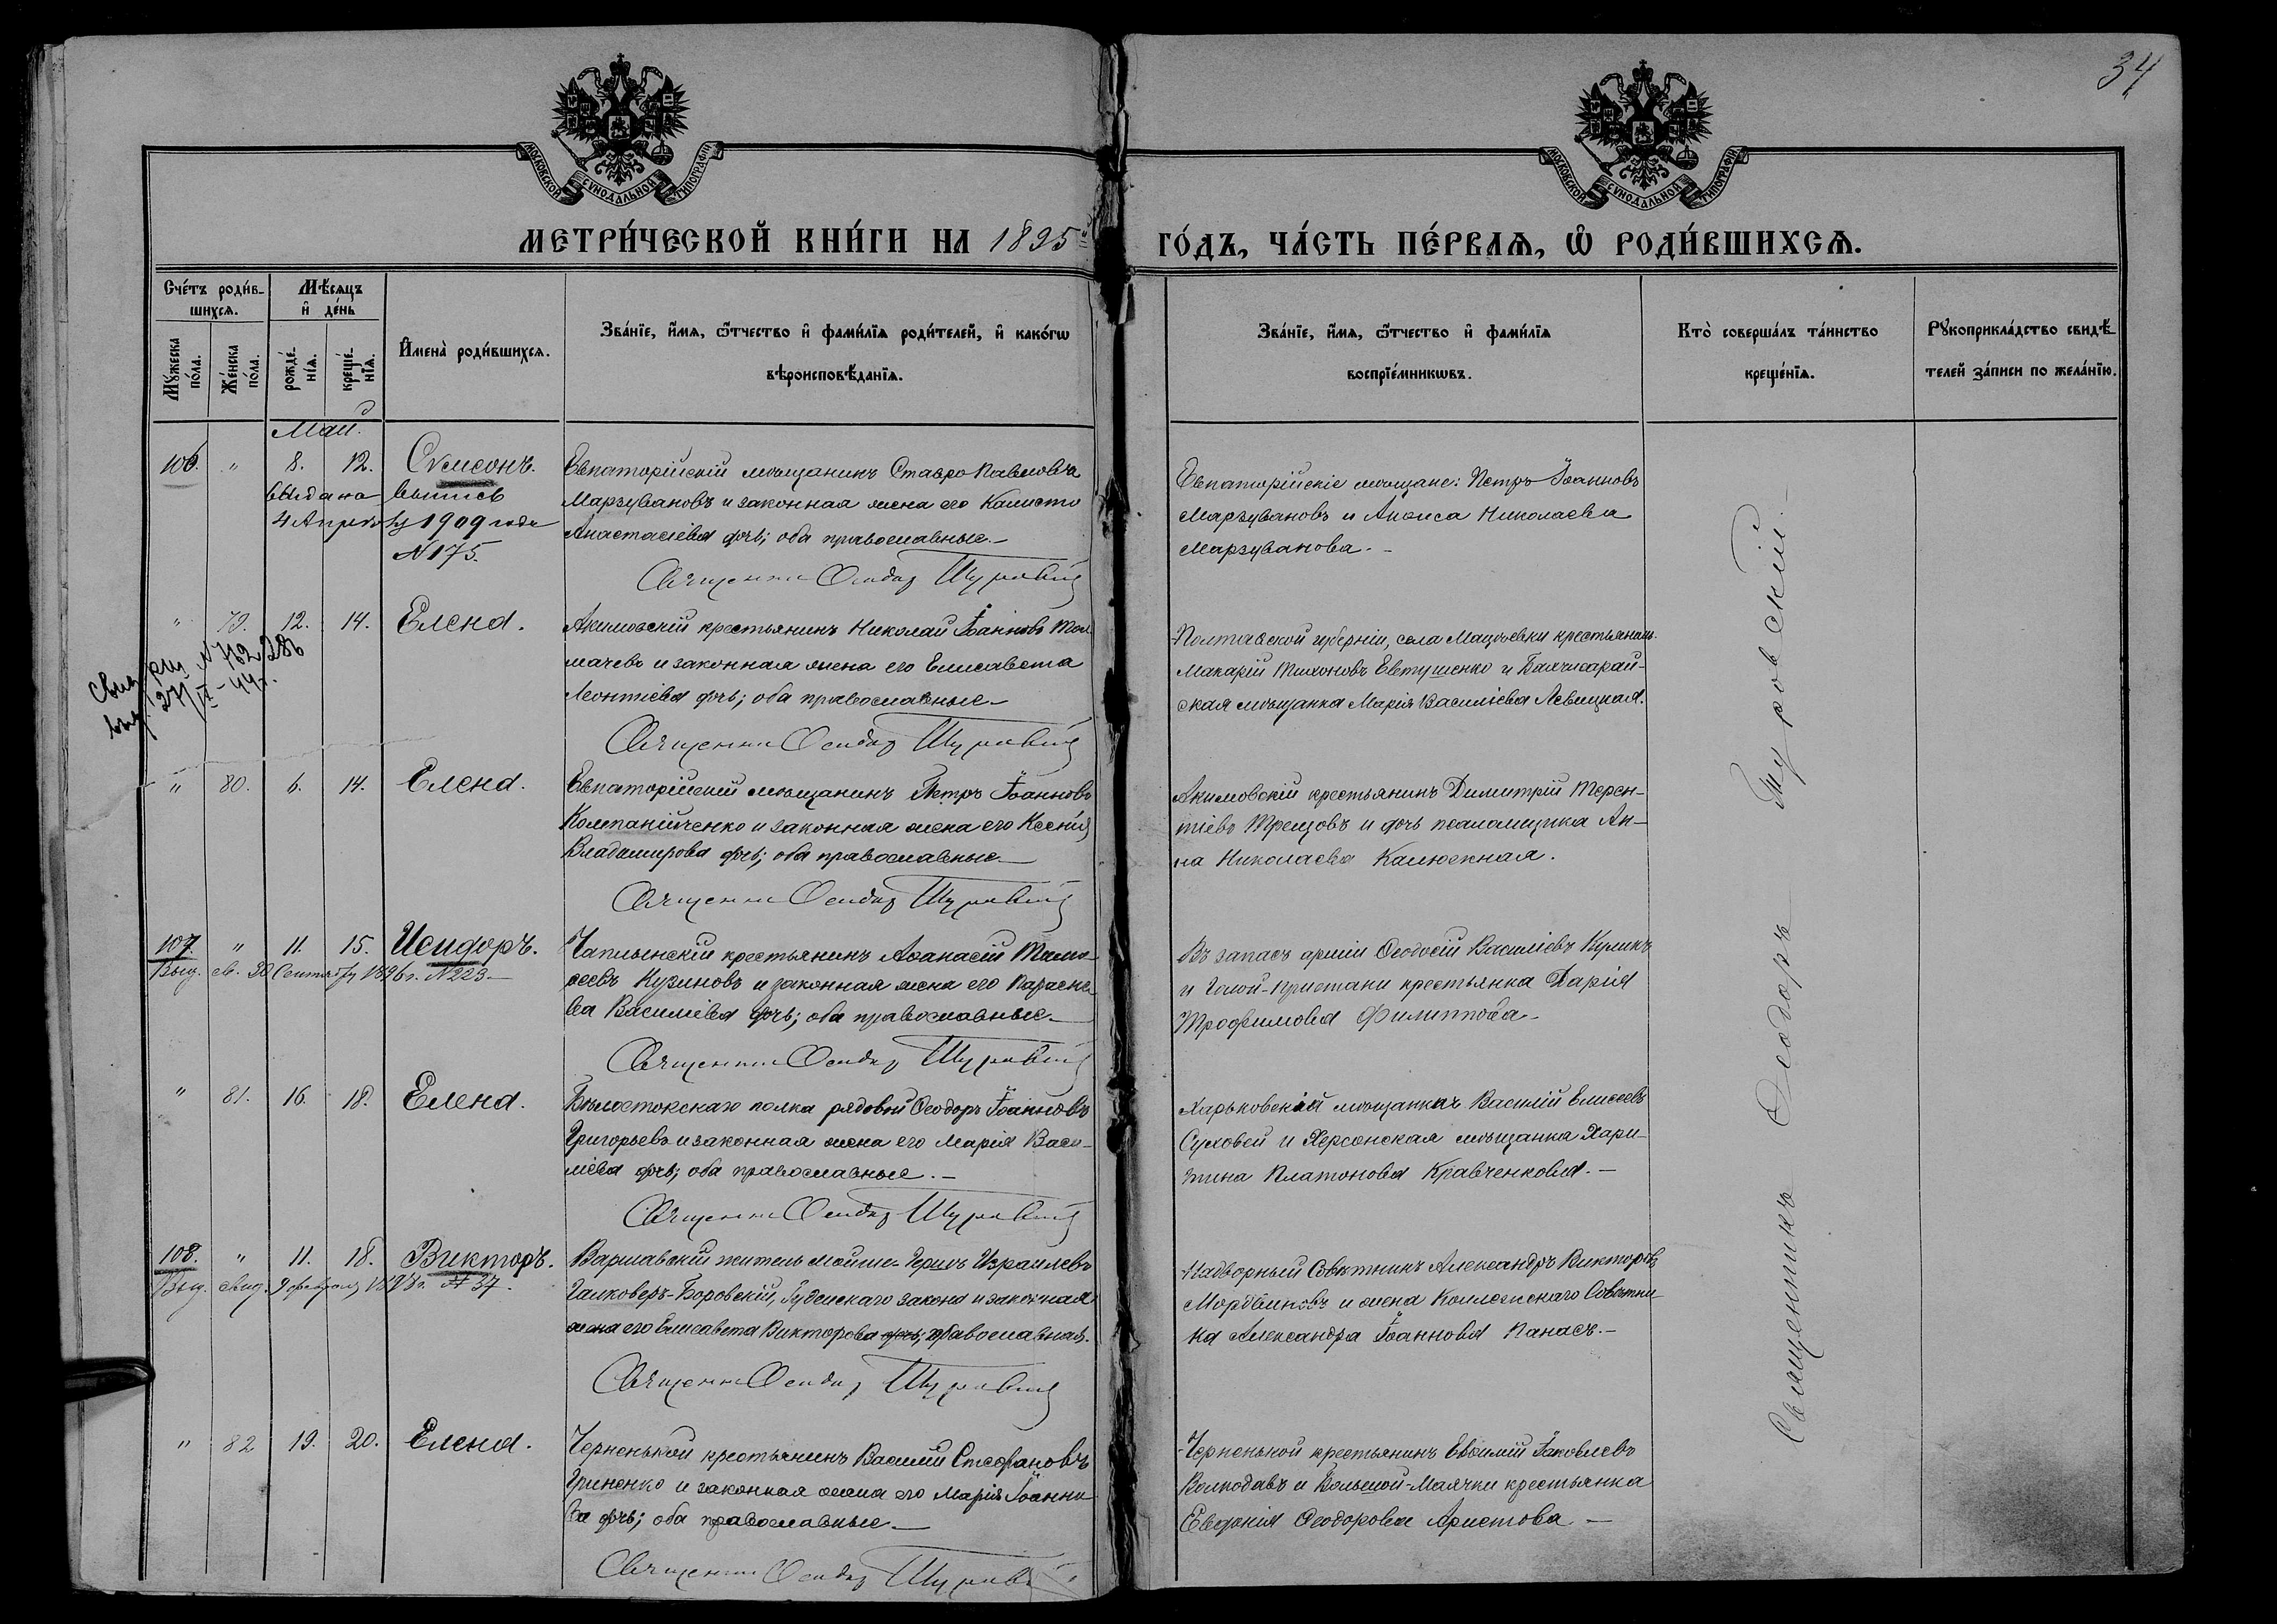 34
МОСКОВСКОЙ СѴНОДАЛЬНОЙ ТИПОГРАФІИ
МОСКОВСКОЙ СѴНОДАЛЬНОЙ ТИПОГРАФІИ
МЕТРИ́ЧЕСКОЙ КНИ́ГИ НА 1895 ГО́ДЪ, ЧА́СТЬ ПЕ́РВАѦ, Ѡ҆ РОДИ́ВШИХСѦ.
Сче́тъ роди́в-
шихсѧ.
Мꙋ́жеска по́ла.
Же́нска по́ла.
Мѣ́сяцъ
и҆ де́нь
рожде́-
нїѧ.
креще́-
нїѧ.
И҆мена̀ роди́вшихсѧ.
Зва́нїе, и҆́мѧ, ѻ҆́тчество и҆ фами́лїѧ роди́телей, и҆ како́гѡ
вѣроисповѣ́данїѧ.
Зва́нїе, и҆́мѧ, ѻ҆́тчество и҆ фами́лїѧ
воспрїе́мникѡвъ.
Кто̀ соверша́лъ та́инство
креще́нїѧ.
Рꙋкоприкла́дство свидѣ́-
телей за́писи по жела́нїю.
Май.
106. " 8. 12. Сѵмеонъ.
Выдана выпись
4 Апрѣля 1909 года
N 175.
Евпаторійскій мѣщанинъ Ставро Павловъ
Марзувановъ и законная жена его Калисто
Анастасіева дочь; оба православные.
Священникъ Ѳеодоръ Туровскій
Евпаторійскіе мѣщане: Петръ Іоанновъ
Марзувановъ и Анѳиса Николаева
Марзуванова.
" 79. 12. 14. Елена.
Акимовскій крестьянинъ Николай Іоанновъ Тол-
мачевъ и законная жена его Елисавета
Леонтіева дочь; оба православные
Священникъ Ѳеодоръ Туровскій
Полтавской губерніи, села Мацковки крестьянинъ
Макарій Тихоновъ Евтушенко и Бахчисарай-
ская мѣщанка Марія Василіева Левицкая.
" 80. 6. 14. Елена.
Евпаторійскій мѣщанинъ Петръ Іоанновъ
Компанійченко и законная жена его Ксенія
Владимирова дочь; оба православные
Священникъ Ѳеодоръ Туровскій
Акимовскій крестьянинъ Димитрій Терен-
тіевъ Трещовъ и дочь псаломщика Ан-
на Николаева Калюжная.
107. " 11. 15. Исидоръ.
Выд. св. 30 Сентября 1896 г. N 223.
Чаплынскій крестьянинъ Аѳанасій Тимо-
ѳеевъ Кузиновъ и законная жена его Параске-
ва Василіева дочь; оба православные
Священникъ Ѳеодоръ Туровскій
Въ запасъ арміи Ѳеодосій Василіевъ Куликъ
и Голой-Пристани крестьянка Дарія
Трофимова Филиппова
" 81. 16. 18. Елена.
Бѣлостокскаго полка рядовой Ѳеодоръ Іоанновъ
Григорьевъ и законная жена его Марія Васи-
ліева дочь; оба православные.
Священникъ Ѳеодоръ Туровскій
Харьковскій мѣщанинъ Василій Елисеевъ
Суховей и Херсонская мѣщанка Хари-
тина Платонова Кравченкова.
108. " 11. 18. Викторъ.
Выд. свид. 9 февраля N 37.
Варшавскій житель Израилевъ
Галковеръ-Боровскій, Іудейскаго закона и законная
жена его Елисавета Викторова дочь; православная.
Священникъ Ѳеодоръ Туровскій
Надворный Совѣтникъ Александръ Викторовъ
Мордвиновъ и жена Коллежскаго Совѣтни-
ка Александра Іоаннова Панасъ.
" 82 19. 20. Елена.
Черненькой крестьянинъ Василій Стефановъ
Гриненко и законная жена его Марія Іоанно-
ва дочь; оба православные
Священникъ Ѳеодоръ Туровскій
Черненькой крестьянинъ Евѳимій Іаковлевъ
Волкодавъ и Большой-Маячки крестьянка
Евфимія Ѳеодорова Аристова
Священникъ Ѳеодоръ Туровскій